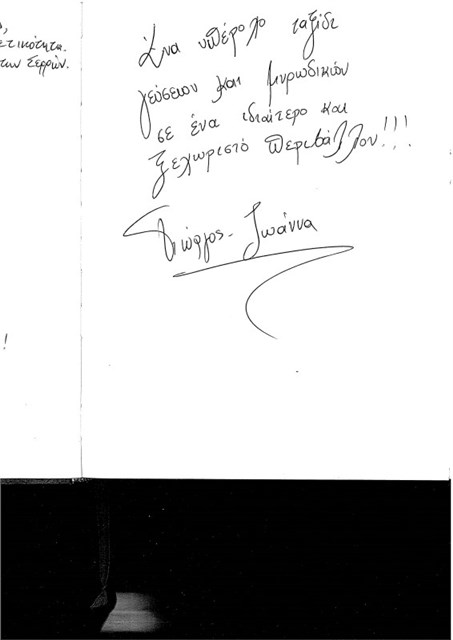 ετικότητα.
των Σερρών.
Ένα υπέροχο ταξίδι
γεύσεων και μυρωδικών
σε ένα ιδιαίτερο και
ξεχωριστό περιβάλλον!!!
Γιώργος - Ιωάννα
!